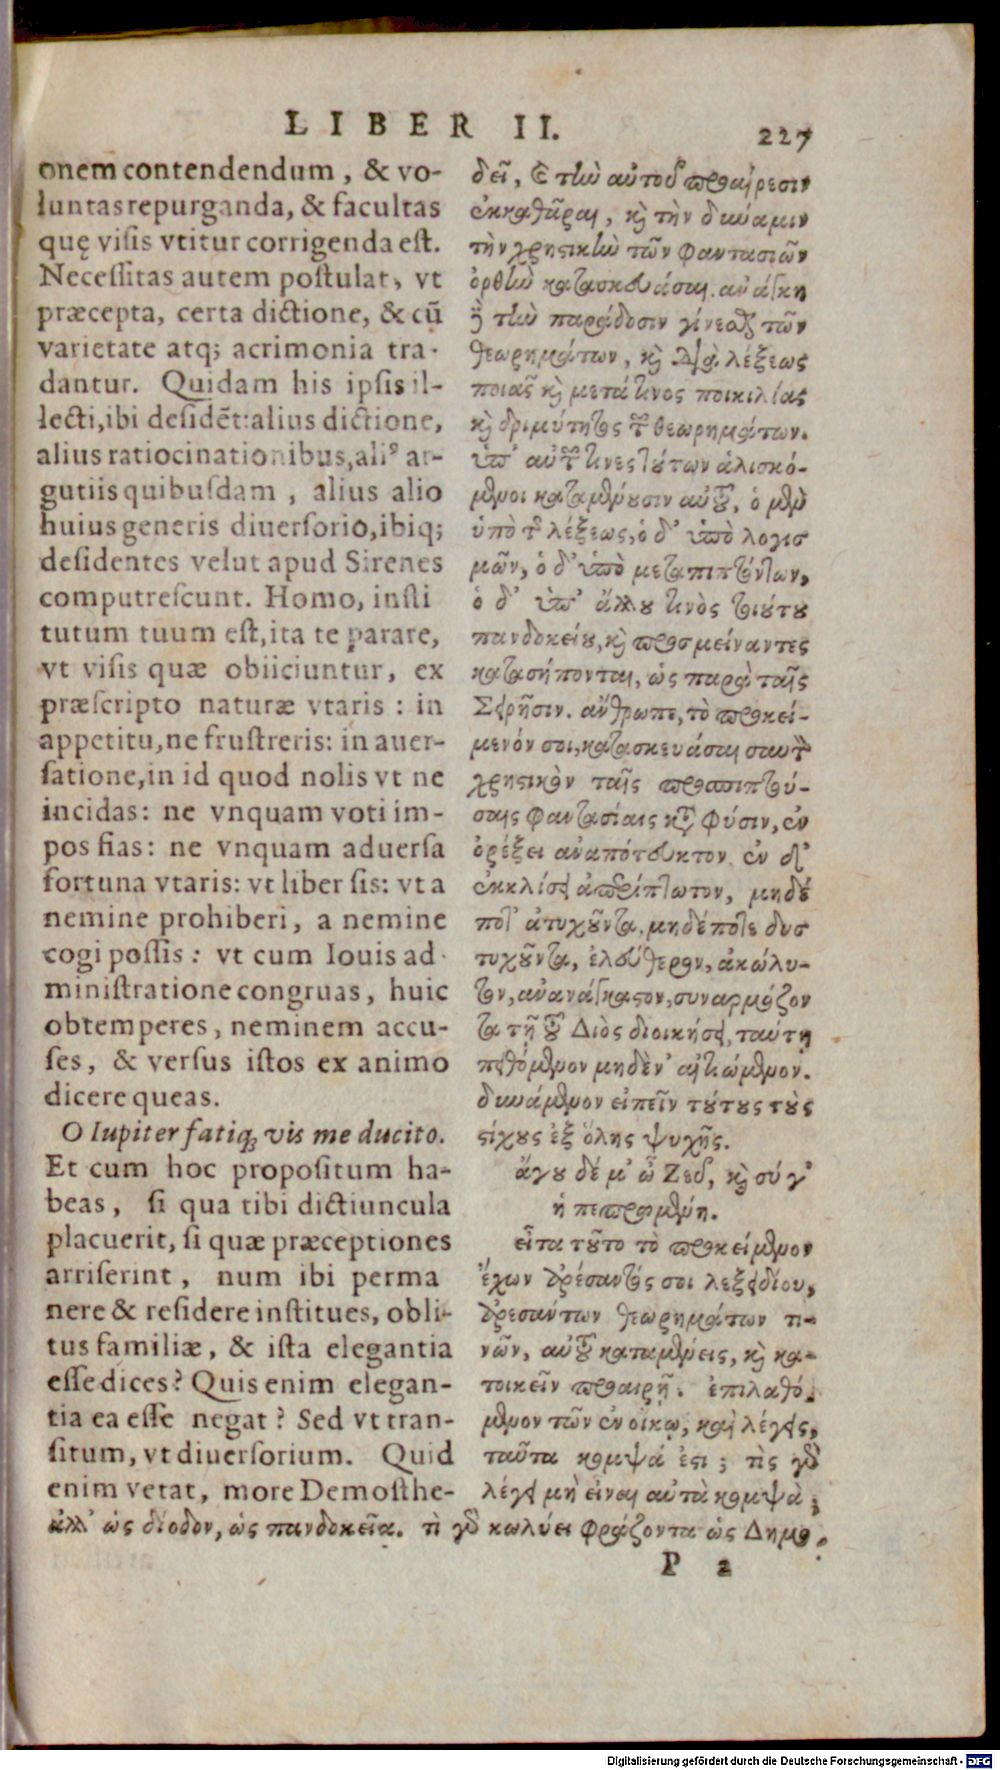 LIBER II. 227
onem contendendum, & vo-
luntas repurganda, & facultas
quę visis vtitur corrigenda est.
Necessitas autem postulat, vt
præcepta, certa dictione, & cũ
varietate atq; acrimonia tra-
dantur. Quidam his ipsis il-
lecti, ibi desidẽt: alius dictione,
alius ratiocinationibus, ali⁹ ar-
gutiis quibusdam, alius alio
huius generis diuersorio, ibiq;
desidentes velut apud Sirenes
computrescunt. Homo, insti
tutum tuum est, ita te parare,
vt visis quæ obiiciuntur, ex
præscripto naturæ vtaris: in
appetitu, ne frustreris: in auer-
satione, in id quod nolis vt ne
incidas: ne vnquam voti im-
pos fias: ne vnquam aduersa
fortuna vtaris: vt liber sis: vt a
nemine prohiberi, a nemine
cogi possis: vt cum Iouis ad-
ministratione congruas, huic
obtemperes, neminem accu-
ses, & versus istos ex animo
dicere queas.
O Iupiter fatiq; vis me ducito.
Et cum hoc propositum ha-
beas, si qua tibi dictiuncula
placuerit, si quæ præceptiones
arriserint, num ibi perma
nere & residere institues, obli-
tus familiæ, & ista elegantia
esse dices? Quis enim elegan-
tia ea esse negat? Sed vt tran-
situm, vt diuersorium. Quid
enim vetat, more Demosthe-
δεῖ, & τὴν αὐτοῦ προαίρεσιν
ἐκκαθᾶραι, καὶ τὴν δύναμιν
τὴν χρηστικὴν τῶν φαντασιῶν
ὀρθὴν κατασκευάσαι. ἀνάγκη
δὲ τὴν παράδοσιν γίνεσθαι τῶν
θεωρημάτων, καὶ διὰ λέξεως
ποιᾶς καὶ μετά τινος ποικιλίας
καὶ δριμύτητος τῶν θεωρημάτων.
ὑπ' αὐτῶν τινες τούτων ἁλισκό-
μενοι καταμένουσιν αὐτοῦ, ὁ μὲν
ὑπὸ τῆς λέξεως, ὁ δ' ὑπὸ λογισ
μῶν, ὁ δ' ὑπὸ μεταπιπτόντων,
ὁ δ' ὑπ' ἄλλου τινὸς τοιούτου
πανδοκείου, καὶ προσμείναντες
κατασήπονται, ὡς παρὰ ταῖς
Σειρῆσιν. ἄνθρωπε, τὸ προκεί-
μενόν σοι, κατασκευάσαι σαυτὸν
χρηστικὸν ταῖς προσπιπτού-
σαις φαντασίαις κατὰ φύσιν, ἐν
ὀρέξει ἀναπότευκτον. ἐν δ'
ἐκκλίσει ἀπερίπτωτον, μηδέ
ποτ' ἀτυχοῦντα, μηδέποτε δυσ
τυχοῦντα, ἐλεύθερον, ἀκώλυ-
τον, ἀνανάγκαστον, συναρμόζον
τα τῇ τοῦ Διὸς διοικήσει, ταύτῃ
πειθόμενον μηδέν' αἰτιώμενον.
δυνάμενον εἰπεῖν τούτους τοὺς
στίχους ἐξ ὅλης ψυχῆς.
ἄγου δέ μ' ὦ Ζεῦ, καὶ σύ γ'
ἡ πεπρωμένη.
εἶτα τοῦτο τὸ προκείμενον
ἔχων ἀρέσαντός σοι λεξειδίου,
ἀρεσάντων θεωρημάτων τι-
νῶν, αὐτοῦ καταμένεις, καὶ κα-
τοικεῖν προαιρῇ. ἐπιλαθό-
μενον τῶν ἐν οἴκῳ, καὶ λέγεις,
ταῦτα κομψά ἐστι; τὶς γὰρ
λέγει μὴ εἶναι αὐτὰ κομψὰ;
ἀλλ' ὡς δίοδον, ὡς πανδοκεῖα. τὶ γὰρ κωλύει φράζοντα ὡς Δημο-
P 2
Digitalisierung gefördert durch die Deutsche Forschungsgemeinschaft - DFG